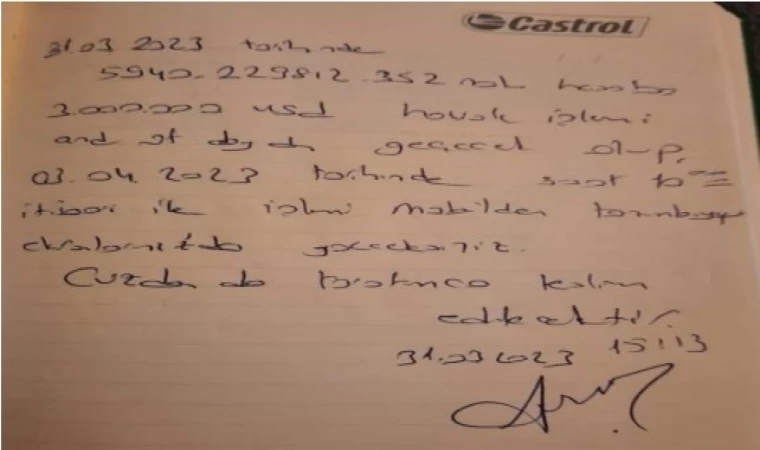 Castrol
31.03 2023 tarihinde
5940-229812.352 nolu hesaba
3.000.000 usd havale işlemi
and of day da geçecek olup,
03.04.2023 tarihinde saat 10
itibari ile işlemi mobilden
ekranlarında göreceksiniz.
Cüzdan da teslim
edilecektir.
31.03 2023 15:13